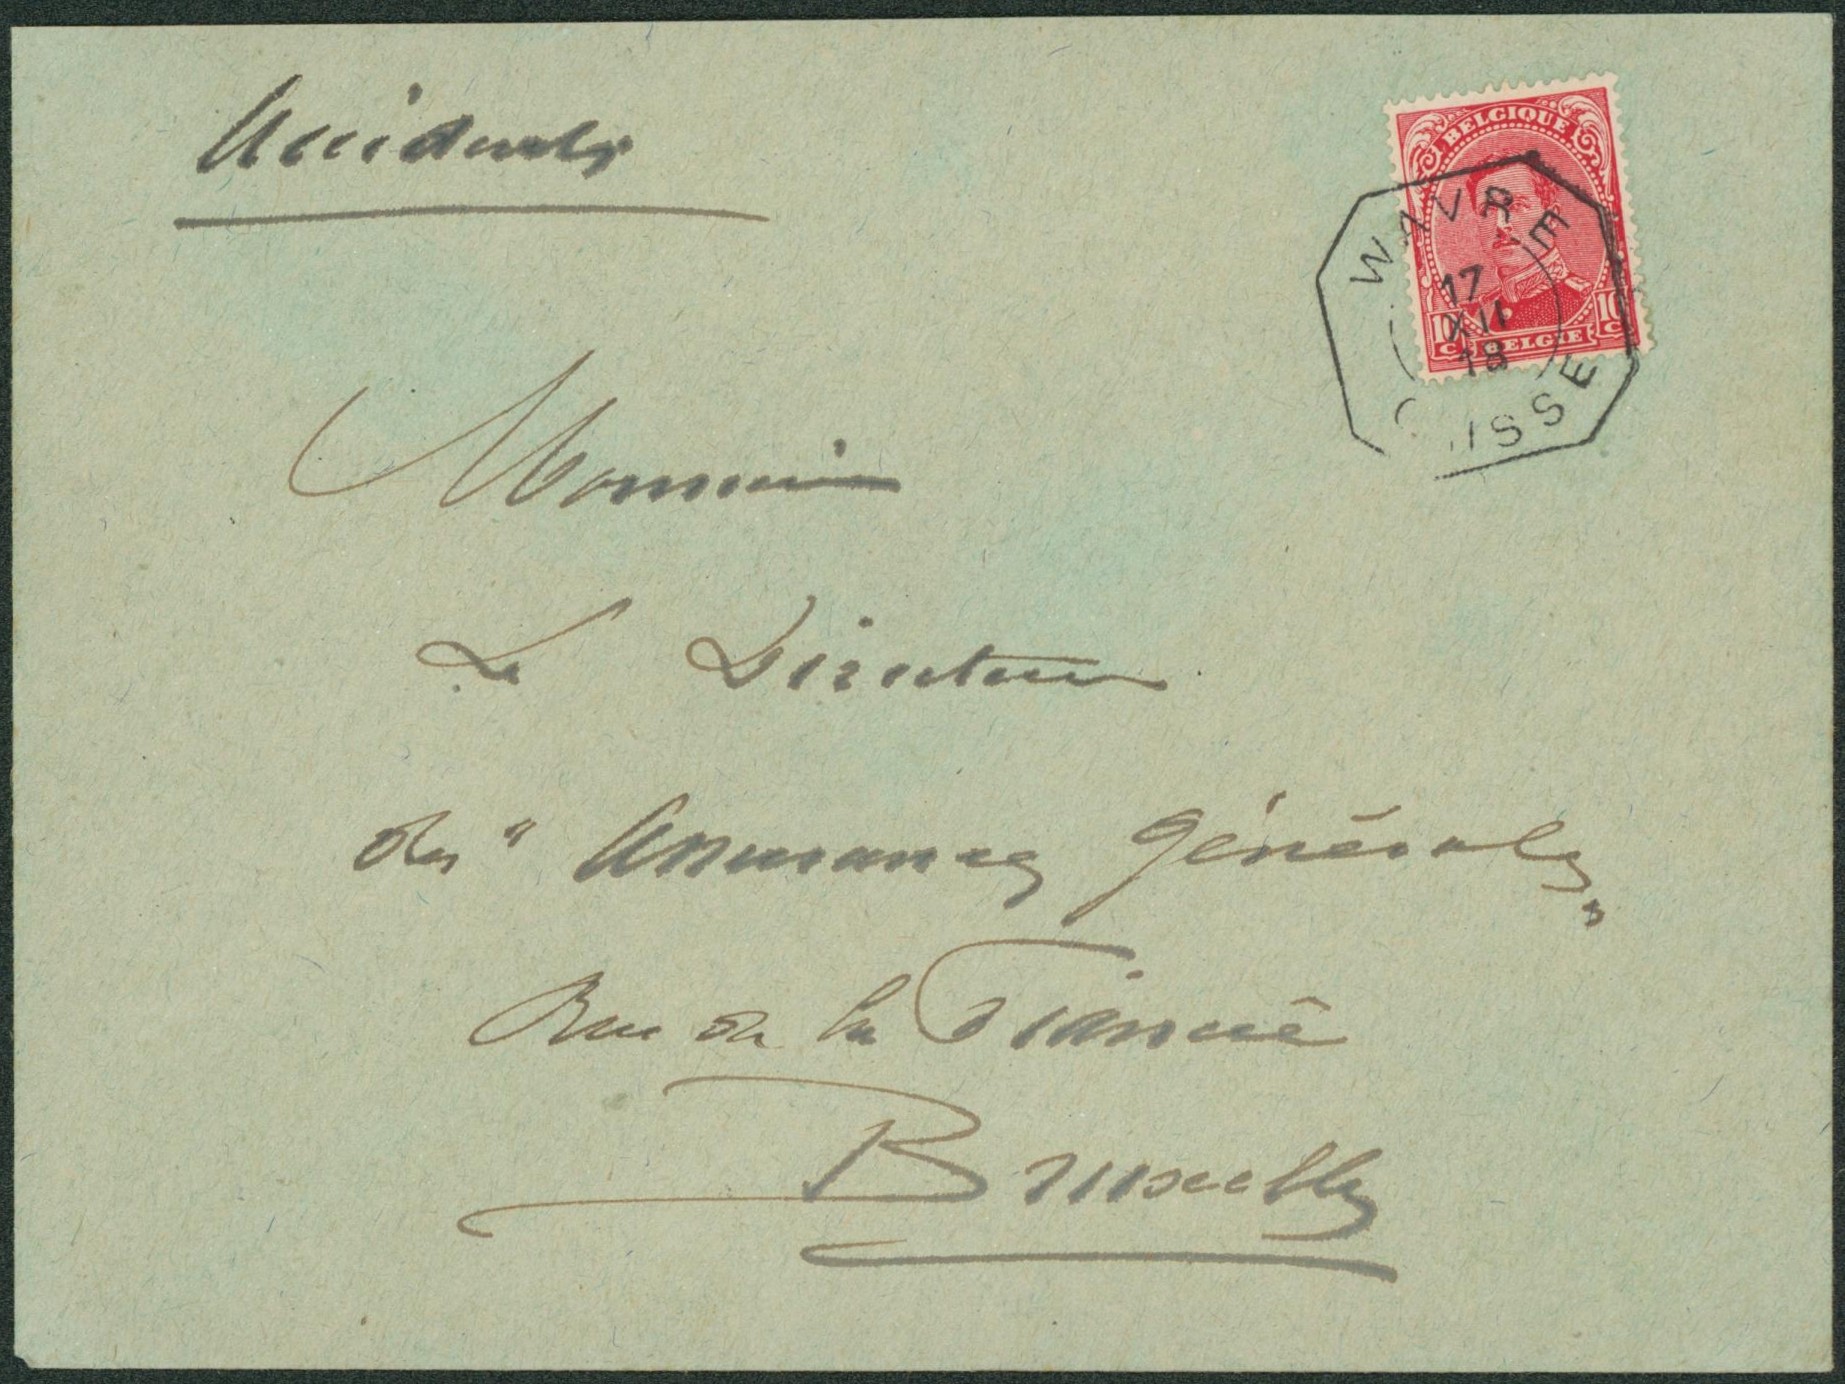 Accidents
BELGIQUE
10 C. BELGIE 10 C.
WAVRE
17
XII
18
Monsieur
Le Directeur
des "Assurances Générales"
Rue de la Fiancée
Bruxelles